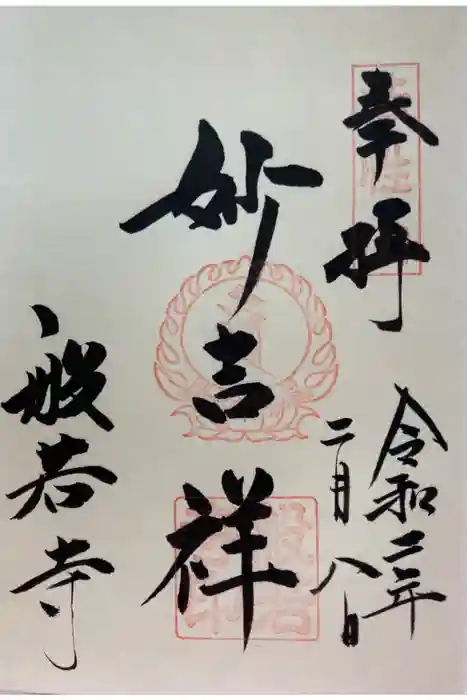 奉拝
令和二年
二月八日
妙吉祥
般若寺